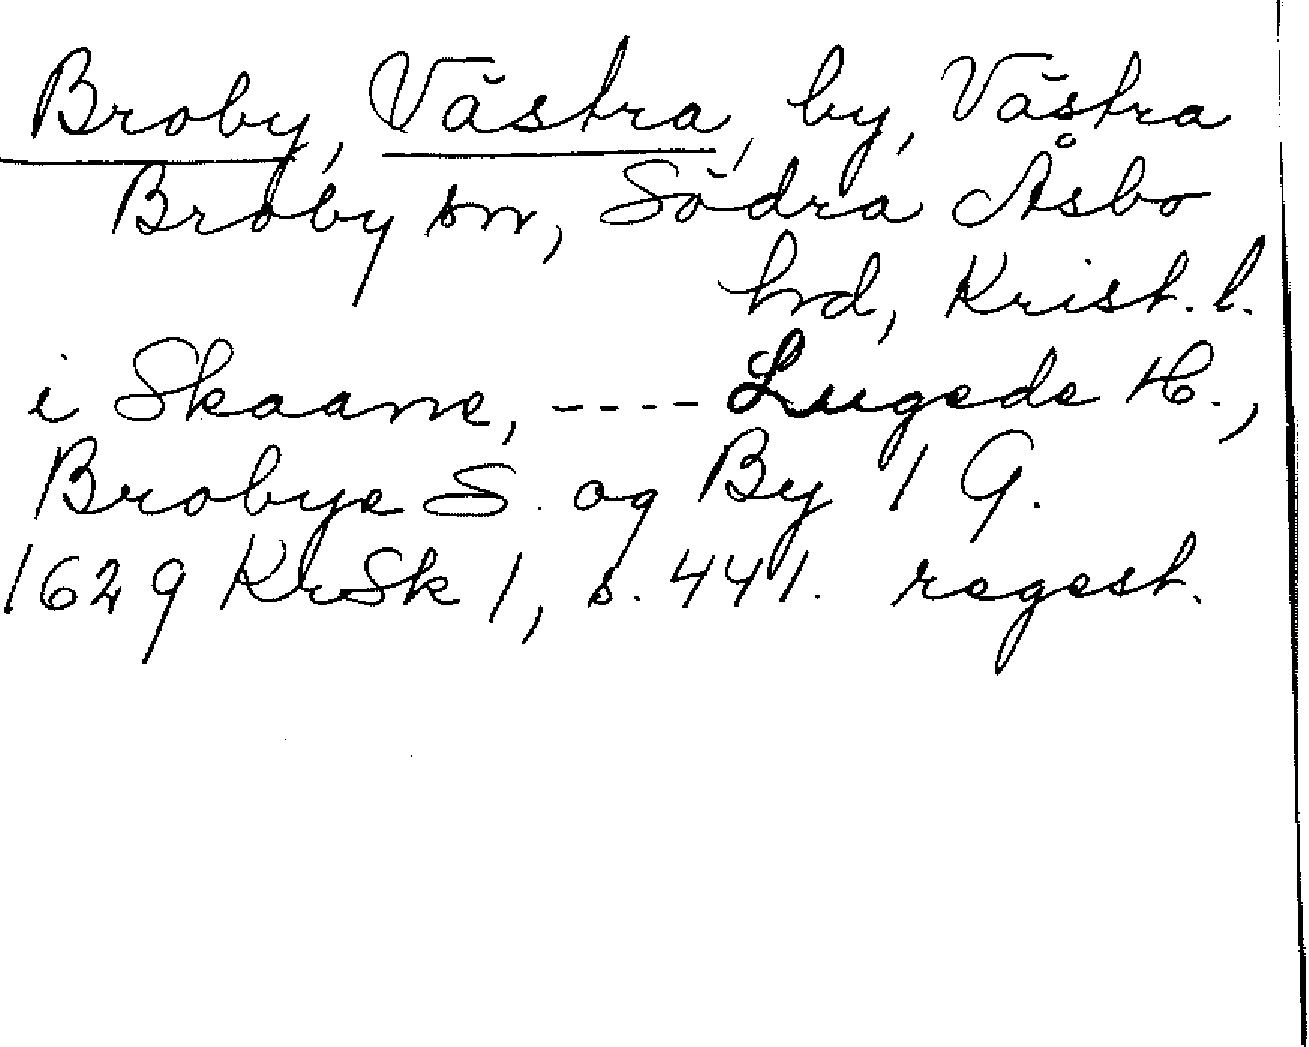 Broby, Västra, by, Västra
Broby sn, Södra Åsbo
hrd, Krist. l.
i Skaane, ---- Lugede H.,
Brobye S. og By 1 G.
1629 KrSk 1, s. 441. regest.